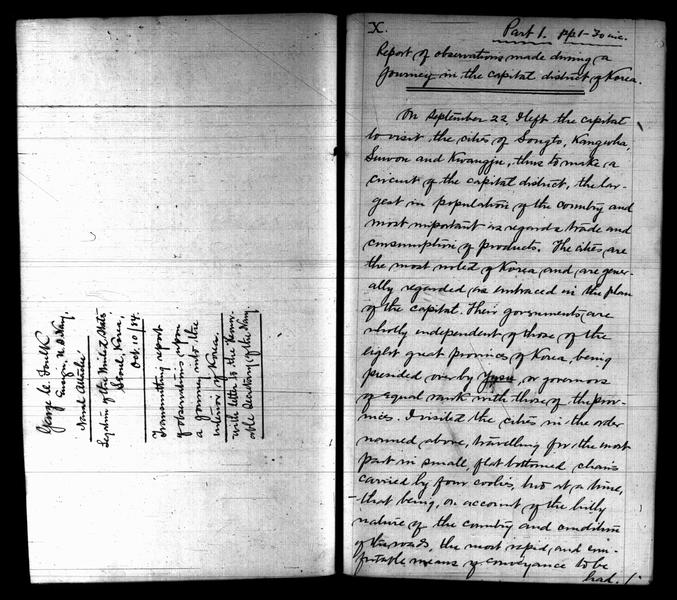 George C. Foulk
Ensign, U.S. Navy.
Naval Attaché
Legation of the United States
Seoul, Korea,
Oct. 10/84.
Transmitting report
of observations upon
a journey into the
interior of Korea.
with letter to the Honor-
able Secretary of the Navy.
X.
Part 1. pp 1-70 inc.
Report of observations made during a
journey in the capital district of Korea.
On September 22 I left the capital
to visit the cities of Songto, Kangwha,
Suwon and Kwangju, thus to make a
circuit of the capital district, the lar-
gest in population of the country and
most important as regards trade and
consumption of products. The cities are
the most noted of Korea and are gener-
ally regarded as embraced in the plan
of the capital. Their governments are
wholly independent of those of the
eight great provinces of Korea, being
presided over by or governors
of equal rank with those of the prov-
inces. I visited the cities in the order
named above, travelling for the most
part in small, flat bottomed chairs
carried by four coolies, two at a time,
that being, on account of the hilly
nature of the country and condition
of the roads, the most rapid and
means of conveyance to be
had.